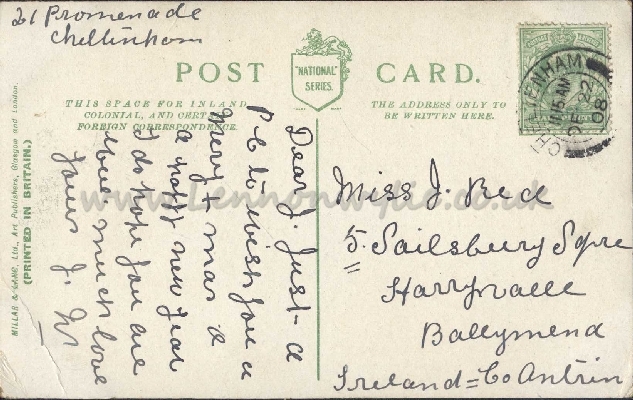 21 Promenade
Cheltinham
POST CARD.
"NATIONAL"
SERIES.
THIS SPACE FOR INLAND
COLONIAL, AND CERTAIN
FOREIGN CORRESPONDENCE.
THE ADDRESS ONLY TO
BE WRITTEN HERE.
CHELTENHAM
11.15 AM
DE 22
08
Dear J. Just a
P.C to wish you a
Merry + mas &
a happy new year
I do hope you are
well much love
yours J.
Miss J. Beck
5. Sailsbury Sqre
Harryvalle
Ballymena
Ireland = Co Antrim
MILLAR & LANG, Ltd., Art Publishers, Glasgow and London.
(PRINTED IN BRITAIN.)
www.Lennonwylie.co.uk